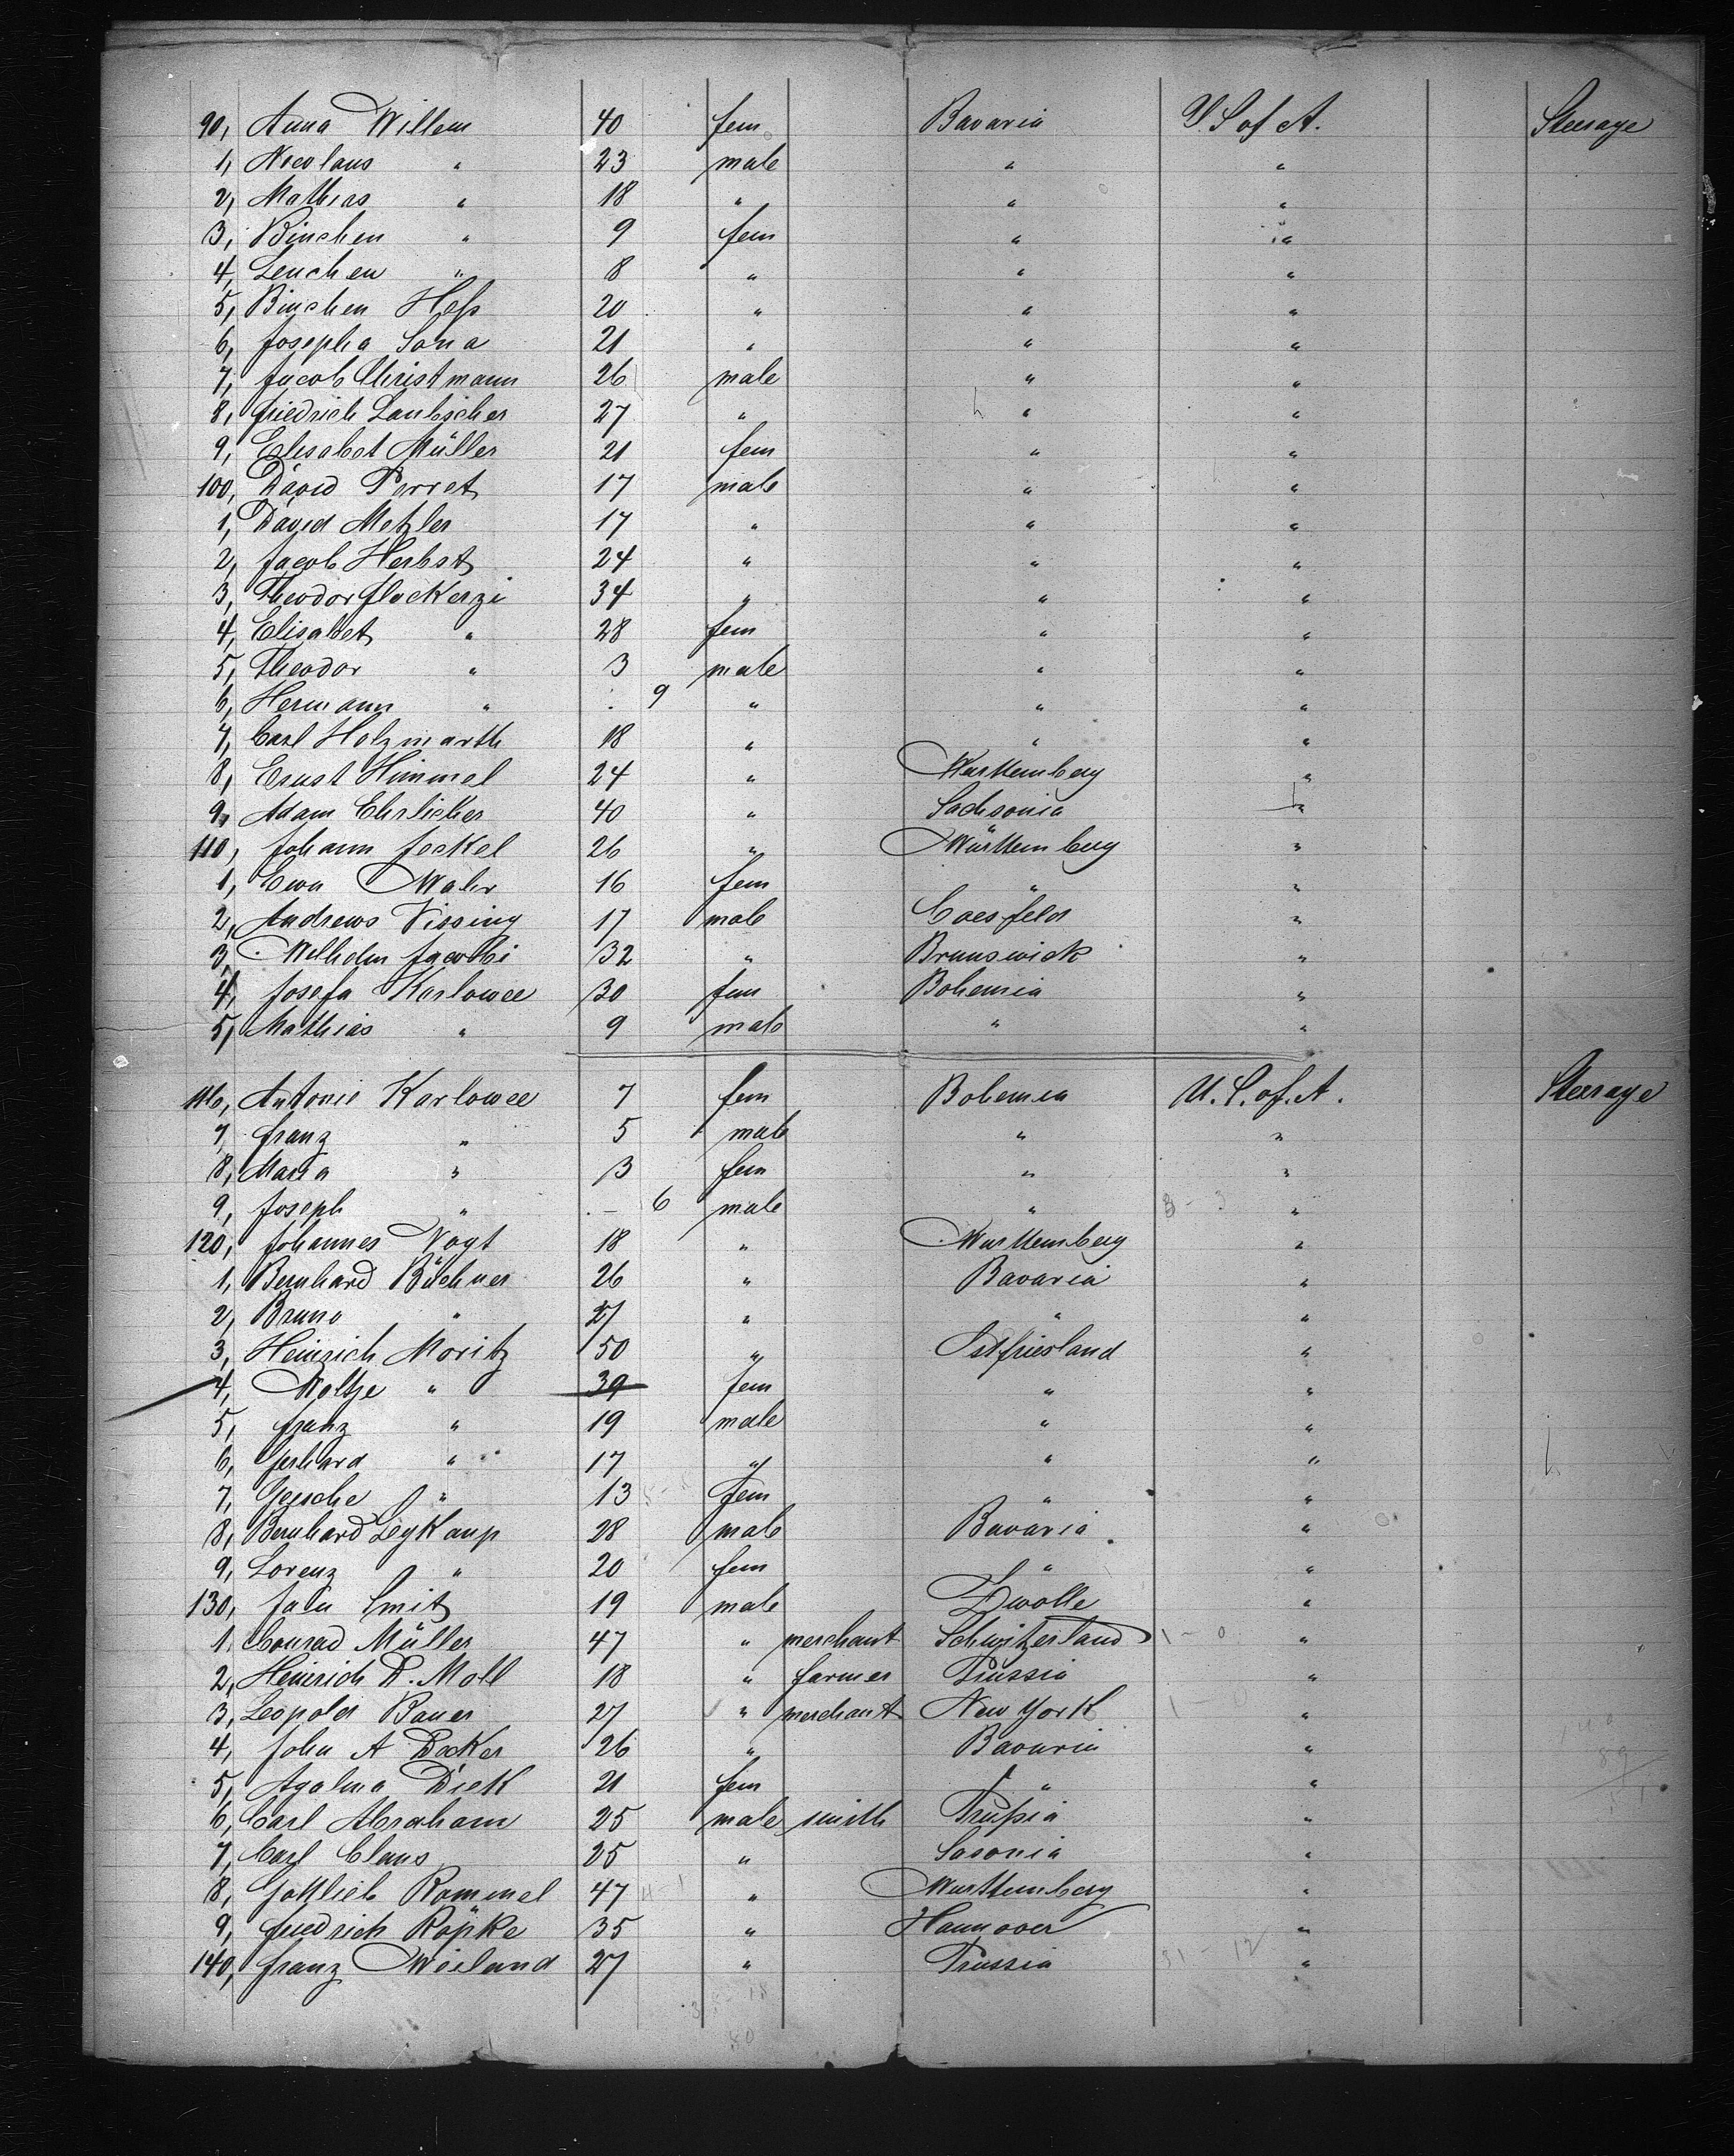 90, Anna Willem 40 fem Bavaria U. S of A. Steerage
1, Nicolaus " 23 male " "
2, Mathias " 18 " " "
3, Binchen " 9 fem " "
4, Lenchen " 8 " " "
5, Binchen Heſs 20 " " "
6, Josepha Sona 21 " " "
7, Jacob Christmann 26 male " "
8, Friedrich Laubscher 27 " " "
9, Elisabet Müller 21 fem " "
100, David Perret 17 male " "
1, David Metzler 17 " " "
2, Jacob Herbst 24 " " "
3, Theodor Flockerzi 34 " " "
4, Elisabet " 28 fem " "
5, Theodor " 3 male " "
6, Hermann " . 9 " " "
7, Carl Holzmarth 18 " " "
8, Ernst Himmel 24 " Württemberg "
9, Adam Ehrlicher 40 " Sachsonia "
110, Johann Jockel 26 " Württemberg "
1, Ewa Mahr 16 fem " "
2, Andrews Vissing 17 male Coesfeld "
3, Wilhelm Jacobi 32 " Brunswick "
4, Josefa Karlowee 30 fem Bohemia "
5, Mathias " 9 male " "
116, Antonie Karlowee 7 fem Bohemia U. S. of. A. Steerage
7, Franz " 5 male " "
8, Maria " 3 fem " "
9, Joseph " - 6 male " "
120, Johannes Vogt 18 " Württemberg "
1, Bernhard Büchner 26 " Bavaria "
2, Bruno " 27 " " "
3, Heinrich Moritz 50 " Ostfriesland "
4, Woltje " 39 fem " "
5, Franz " 19 male " "
6, Gerhard " 17 " " "
7, Geesche " 13 fem " "
8, Bernhard Leykamp 28 male Bavaria "
9, Lorenz " 20 fem " "
130, Jann Smit 19 male Zwolle "
1, Conrad Müller 47 " merchant Schwitzerland "
2, Heinrich D. Moll 18 " farmer Prussia "
3, Leopold Bauer 27 " merchant New York "
4, John A Decker 26 " Bavaria "
5, Dick 21 fem " "
6, Carl Abraham 25 male smith Pruſsia "
7, Carl Claus 25 " Saxonia "
8, Gottlieb Rommel 47 " Württemberg "
9, Friedrich Röpke 35 " Hannover "
140, Franz Weiland 27 " Prussia "